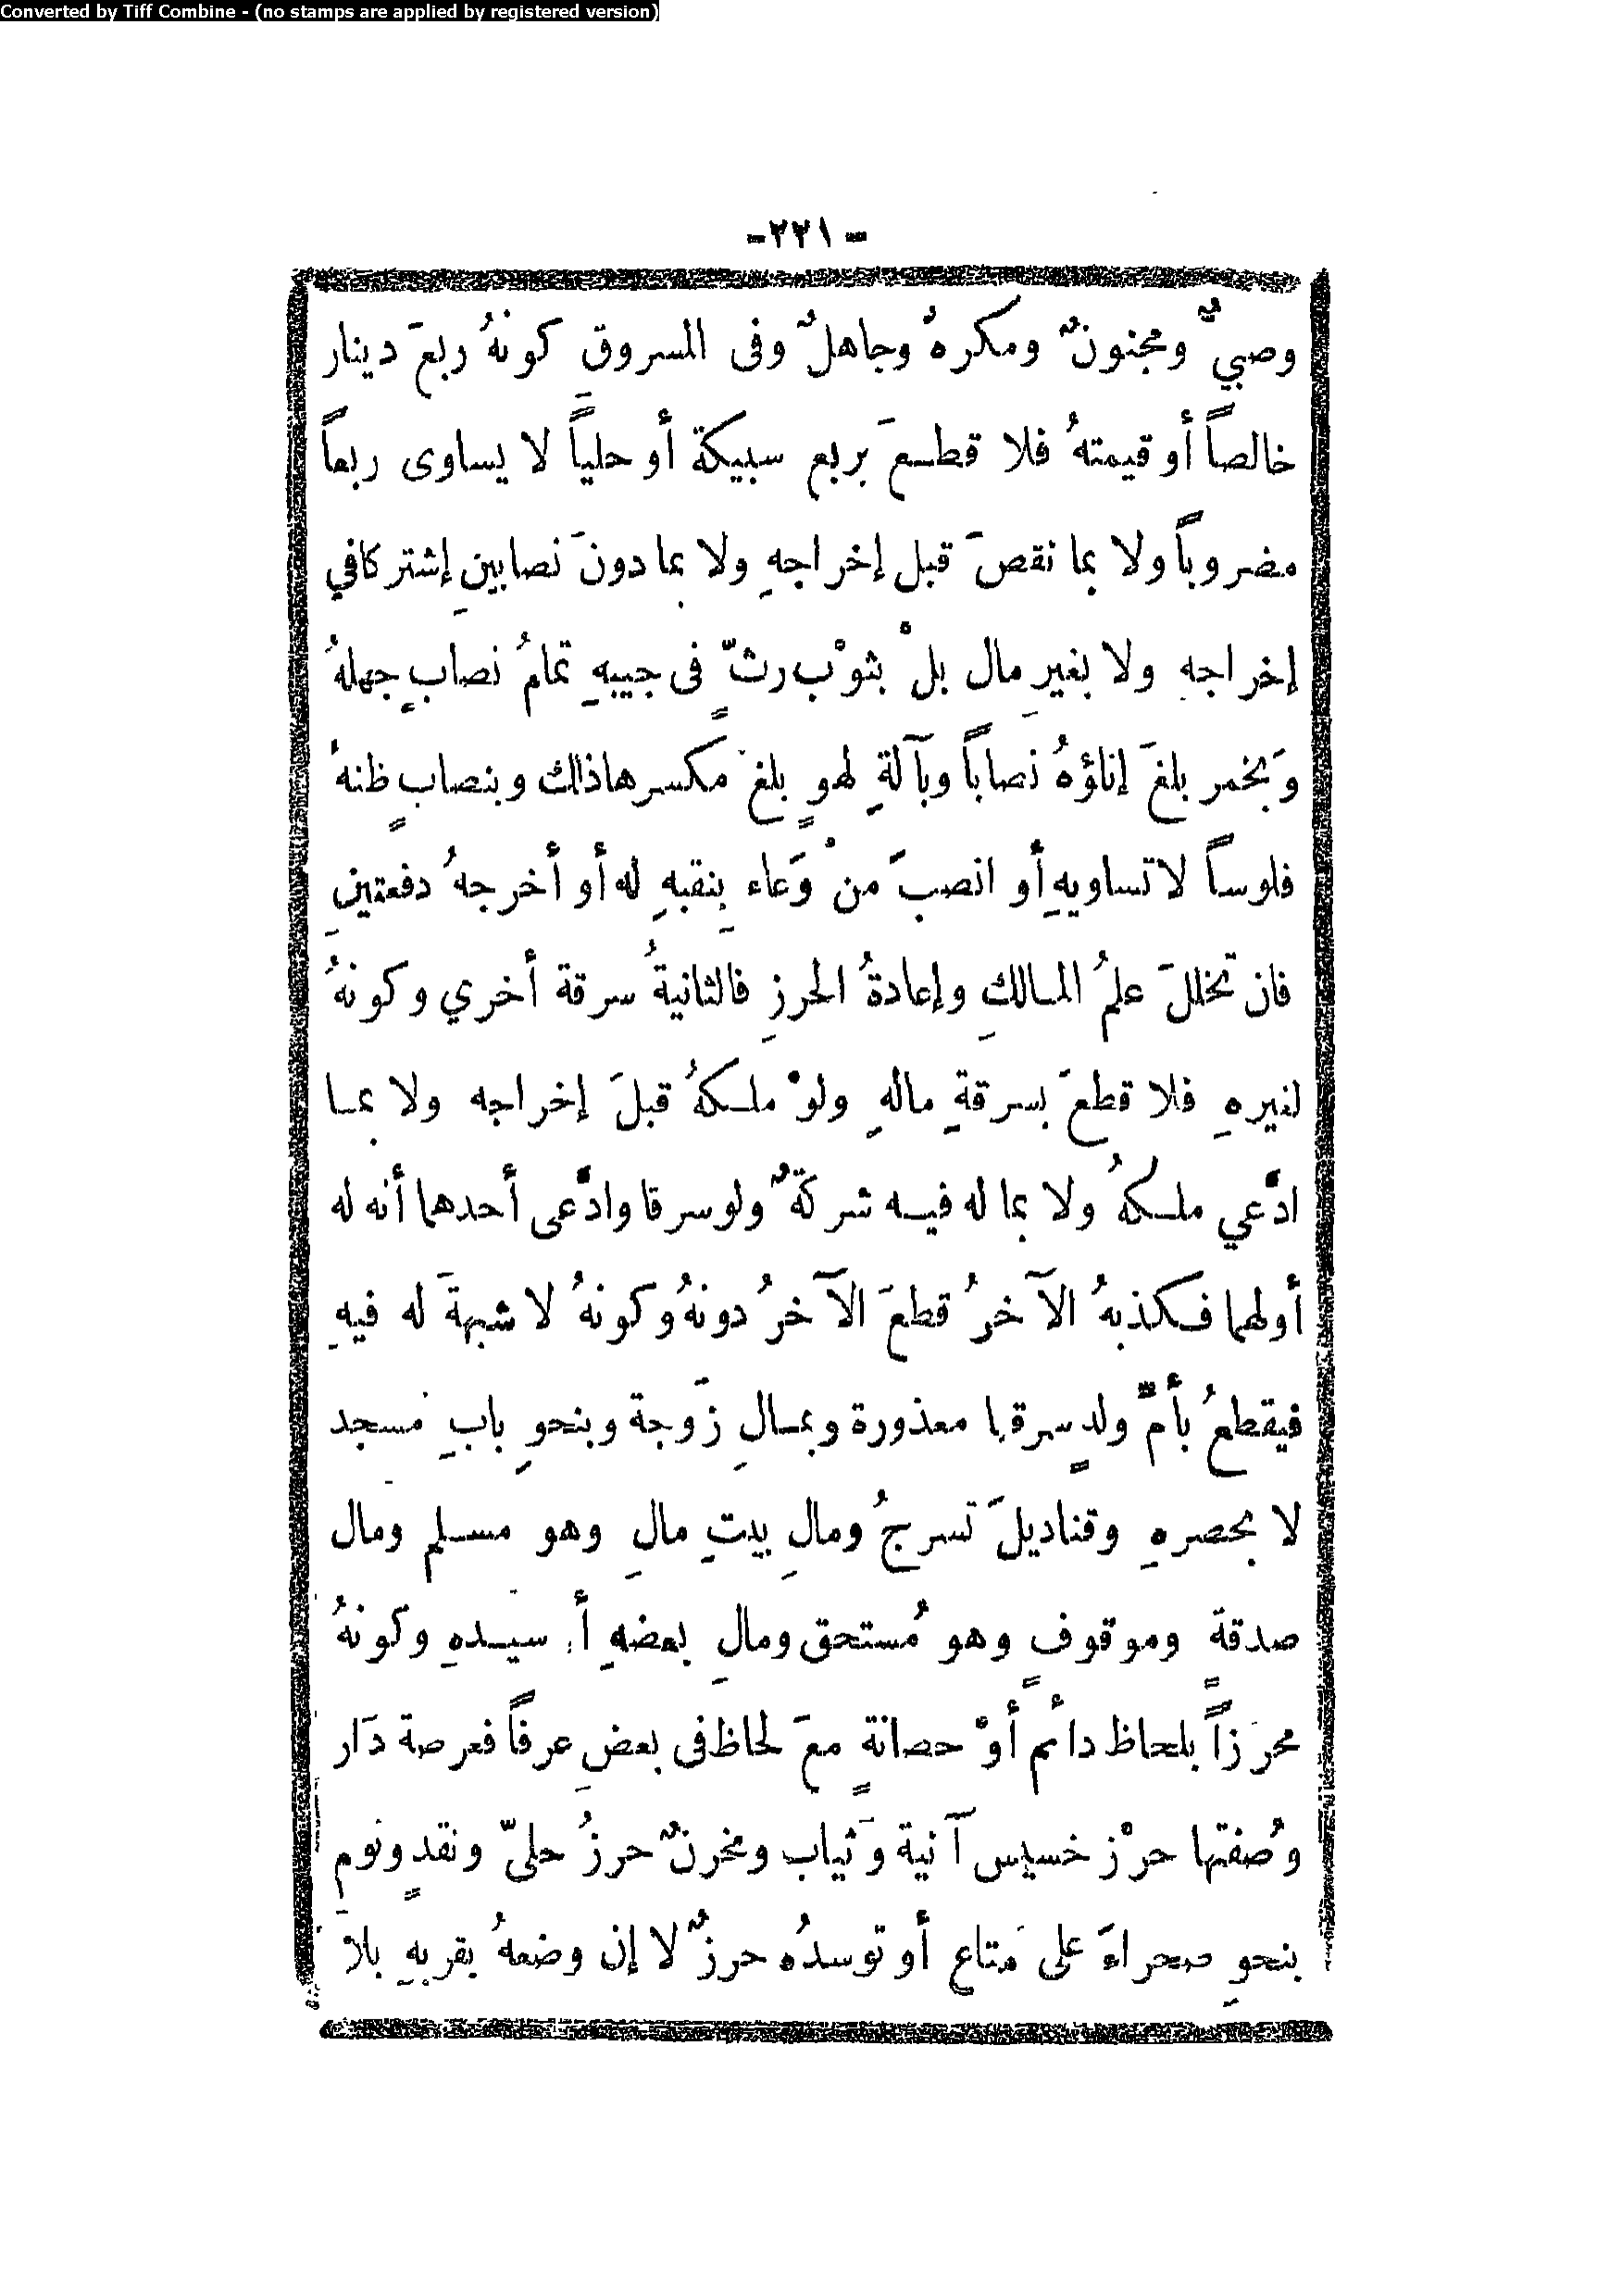 Converted by Tiff Combine - (no stamps are applied by registered version)
-٢٢١-
وصبيٌّ ومجنونٌ ومكرهٌ وجاهلٌ وفى المسروقِ كونهُ ربعَ دينار
خالصاً أو قيمتهُ فلا قطعَ بربع سبيكة أو حلياً لا يساوى ربعاً
مضروباً ولا بما نقصَ قبل إخراجهِ ولا بما دونَ نصابينِ إشتركا في
إخراجهِ ولا بغيرِ مال بلْ بثوْب رثٍّ فى جيبهِ تمامُ نصابٍ جهلهُ
وَبخمر بلغَ إناؤهُ نصاباً وبآلةِ لهوٍ بلغَ مكسرها ذالك وبنصابٍ ظنهُ
فلوساً لا تساويهِ أو انصبَّ منْ وَعاء بِنقبهِ له أو أخرجهُ دفعتينِ
فان تخللَ علمُ المالكِ وإعادةُ الحرزِ فالثانيةُ سرقة أخري وكونهُ
لغيرهِ فلا قطعَ بسرقةِ مالهِ ولوْ ملكهُ قبلَ إخراجه ولا بما
ادَّعي ملكهُ ولا بما له فيه شركةٌ ولو سرقا وادَّعى أحدهما أنه له
أولهما فكذبهُ الآخرُ قطعَ الآخرُ دونهُ وكونهُ لا شبهةَ له فيهِ
فيقطعُ بأمِّ ولدٍ سرقها معذورة وبمالِ زَوجة وبنحوِ بابِ مسجد
لا بحصرهِ وقناديلَ تسرجُ ومالِ بيتِ مالِ وهو مسلم ومال
صدقةٍ وموقوفٍ وهو مُستحق ومالِ بعضهِ أ. سيدهِ وكونهُ
محرَزاً بلحاظ دائم أوْ حصانةٍ معَ لحاظ فى بعضِ عرفاً فعرصة دَار
وصُفتها حرْز خسيس آنية وَثياب ومخزنٌ حرزُ حلىّ ونقدٍ ونوم
بنحوِ صحراءَ على مَتاع أو توسدُه حرزٌ لا إن وضعهُ بقربهِ بلا